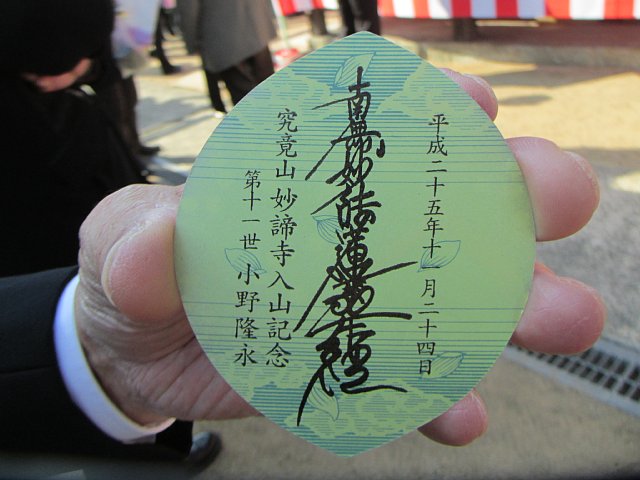 平成二十五年十一月二十四日
南無妙法蓮華経
究竟山 妙諦寺入山記念
第十一世 小野隆永